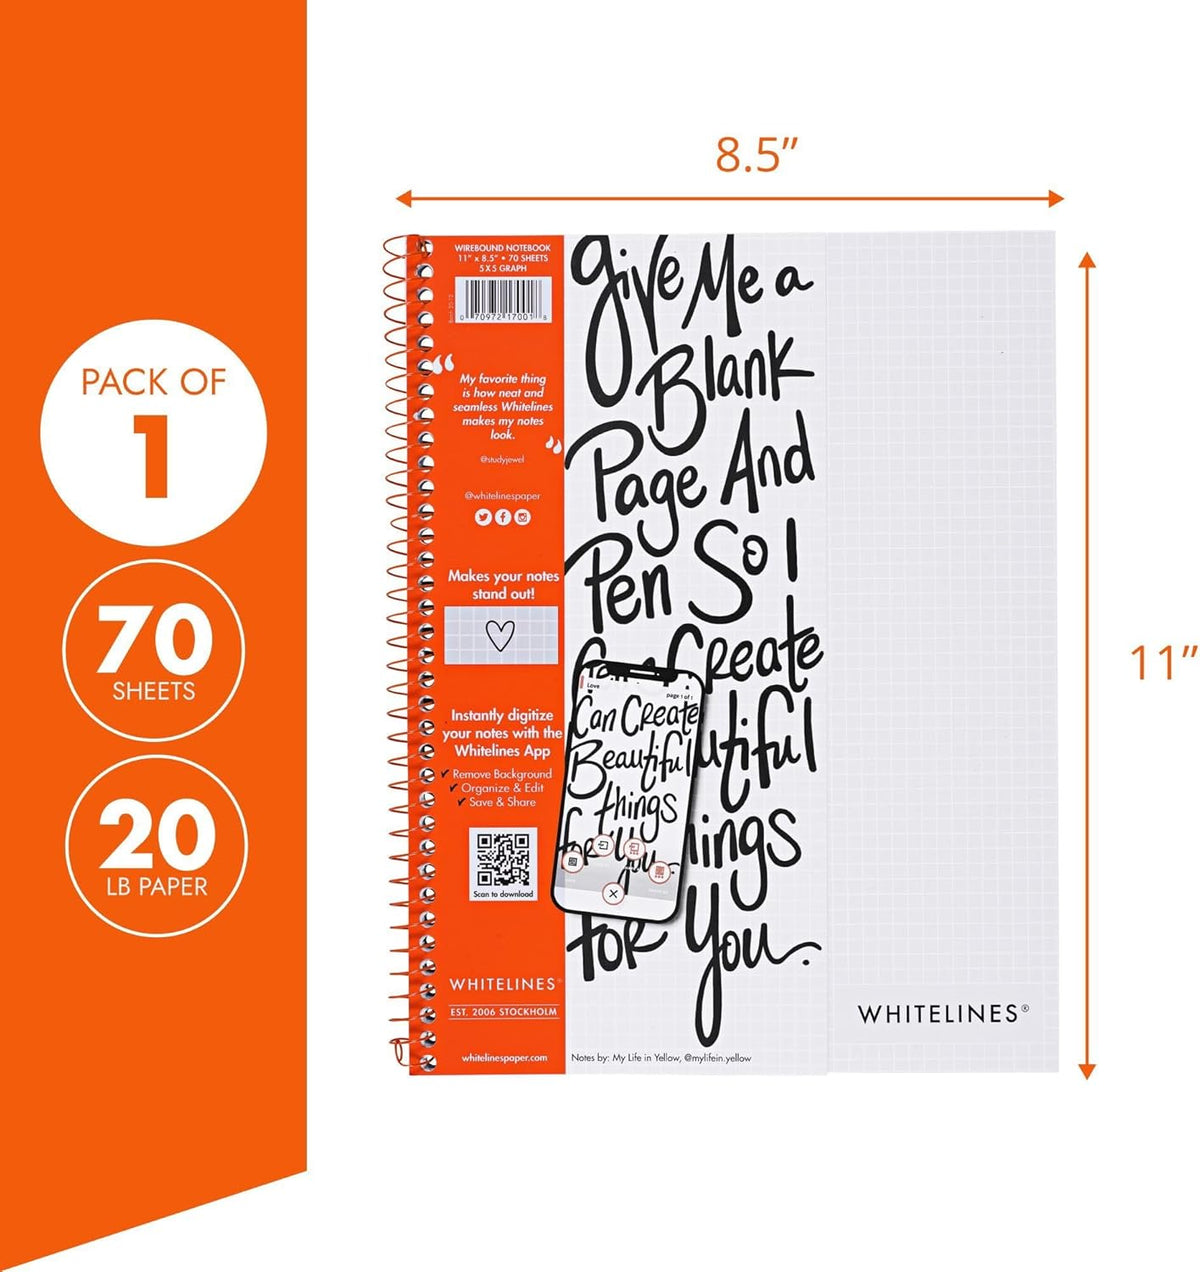 PACK OF
1
70
SHEETS
20
LB PAPER
8.5”
11”
WIREBOUND NOTEBOOK
11" x 8.5" • 70 SHEETS
5 X 5 GRAPH
0 70972 17001 8
“
My favorite thing
is how neat and
seamless Whitelines
makes my notes
look.
”
@studyjewel
@whitelinespaper
Makes your notes
stand out!
Instantly digitize
your notes with the
Whitelines App
✓ Remove Background
✓ Organize & Edit
✓ Save & Share
Scan to download
WHITELINES®
EST. 2006 STOCKHOLM
whitelinespaper.com
Give Me a
Blank
Page And
Pen So I
Can Create
utiful
hings
for You.
Love
page 1 of 1
Can Create
Beautiful
things
for You.
Notes by: My Life in Yellow, @mylifein.yellow
WHITELINES®